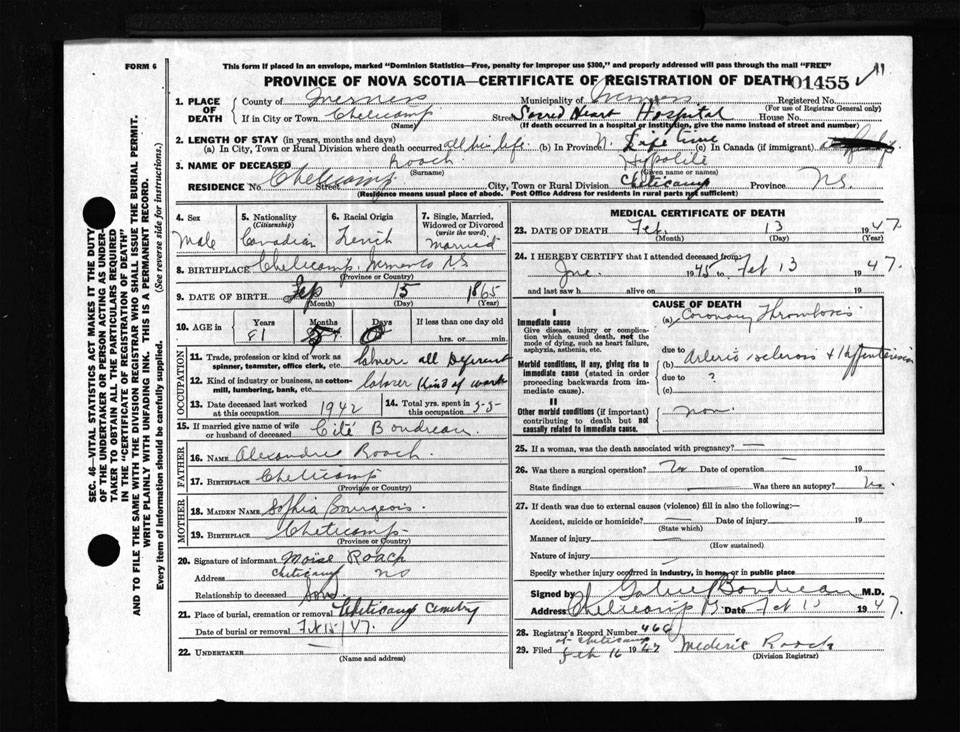 FORM 6
This form if placed in an envelope, marked "Dominion Statistics—Free, penalty for improper use $300," and properly addressed will pass through the mail "FREE"
PROVINCE OF NOVA SCOTIA—CERTIFICATE OF REGISTRATION OF DEATH 01455
1. PLACE OF DEATH
County of Inverness Municipality of Inverness Registered No.
(For use of Registrar General only)
If in City or Town Cheticamp Street Sacred Heart Hospital House No.
(Name) (If death occurred in a hospital or institution, give the name instead of street and number)
2. LENGTH OF STAY (in years, months and days)
(a) In City, Town or Rural Division where death occurred all his life (b) In Province Life time (c) In Canada (if immigrant)
3. NAME OF DECEASED Roach Hypolite
(Surname) (Given name or names)
RESIDENCE No. Cheticamp Street City, Town or Rural Division Cheticamp Province N.S.
(Residence means usual place of abode. Post Office Address for residents in rural parts not sufficient)
4. Sex Male
5. Nationality (Citizenship) Canadian
6. Racial Origin French
7. Single, Married, Widowed or Divorced (write the word) Married
8. BIRTHPLACE Cheticamp, Inverness N.S.
(Province or Country)
9. DATE OF BIRTH Sep 15 1865
(Month) (Day) (Year)
10. AGE in Years 81 Months 5 Days 0 If less than one day old hrs. or min.
OCCUPATION
11. Trade, profession or kind of work as spinner, teamster, office clerk, etc. laborer all Deferent
12. Kind of industry or business, as cotton-mill, lumbering, bank, etc. laborer Kind of work
13. Date deceased last worked at this occupation 1942
14. Total yrs. spent in this occupation 55
15. If married give name of wife or husband of deceased Cité Boudreau
FATHER
16. NAME Alexandre Roach
17. BIRTHPLACE Cheticamp
(Province or Country)
MOTHER
18. MAIDEN NAME Sophia Bourgeois
19. BIRTHPLACE Cheticamp
(Province or Country)
20. Signature of informant Moïse Roach
Address Cheticamp NS
Relationship to deceased Son
21. Place of burial, cremation or removal Cheticamp Cemetry
Date of burial or removal Feb 15/47
22. UNDERTAKER
(Name and address)
MEDICAL CERTIFICATE OF DEATH
23. DATE OF DEATH Feb. 13 1947.
(Month) (Day) (Year)
24. I HEREBY CERTIFY that I attended deceased from:
1945 to Feb 13 1947.
and last saw h alive on 19
CAUSE OF DEATH
I
Immediate cause
Give disease, injury or complication which caused death, not the mode of dying, such as heart failure, asphyxia, asthenia, etc.
(a) Coronary Thrombosis
due to
Morbid conditions, if any, giving rise to immediate cause (stated in order proceeding backwards from immediate cause).
(b) Arterio sclerosis & Hypertension
due to ?
(c)
II
Other morbid conditions (if important) contributing to death but not causally related to immediate cause.
non
25. If a woman, was the death associated with pregnancy?
26. Was there a surgical operation? No Date of operation 19
State findings Was there an autopsy? No
27. If death was due to external causes (violence) fill in also the following:—
Accident, suicide or homicide? Date of injury 19
(State which)
Manner of injury
(How sustained)
Nature of injury
Specify whether injury occurred in industry, in home, or in public place
Signed by Gabriel Boudreau M.D.
Address Cheticamp Date Feb 13 1947.
28. Registrar's Record Number 466
at Cheticamp
29. Filed Feb 16 1947 Mederic Roach
(Division Registrar)
SEC. 46—VITAL STATISTICS ACT MAKES IT THE DUTY
OF THE UNDERTAKER OR PERSON ACTING AS UNDERTAKER TO OBTAIN ALL THE PARTICULARS REQUIRED
IN THE "CERTIFICATE OF REGISTRATION OF DEATH"
AND TO FILE THE SAME WITH THE DIVISION REGISTRAR WHO SHALL ISSUE THE BURIAL PERMIT.
WRITE PLAINLY WITH UNFADING INK. THIS IS A PERMANENT RECORD.
Every item of information should be carefully supplied. (See reverse side for instructions.)